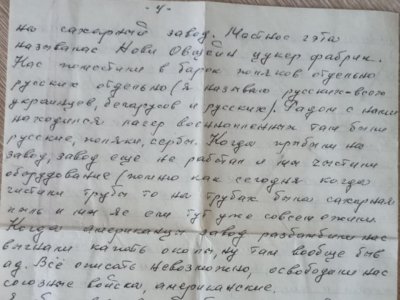 - 4 -
на сахарный завод. Частное гэта
называлас Нови Овшейн цукер фабрик.
Нас поместили в барок поляков отдельно
русских отдельно (я называю русских - всех
украинцев, беларусов и русских). Рядом с нами
находился лагер военнопленных там были
русские, поляки, сербы. Когда прибыли на
завод, завод еще не работал и мы чистили
оборудование (помню как сегодня когда
чистили трубы то на трубах была сахарная
пыль и мы яе ели тут уже совсем ожили.
Когда американцы завод разбомбили нас
выслали капать окопы, ну там вообще быв
ад. Всё описать невозможно, освободили нас
союзные войска, американские.